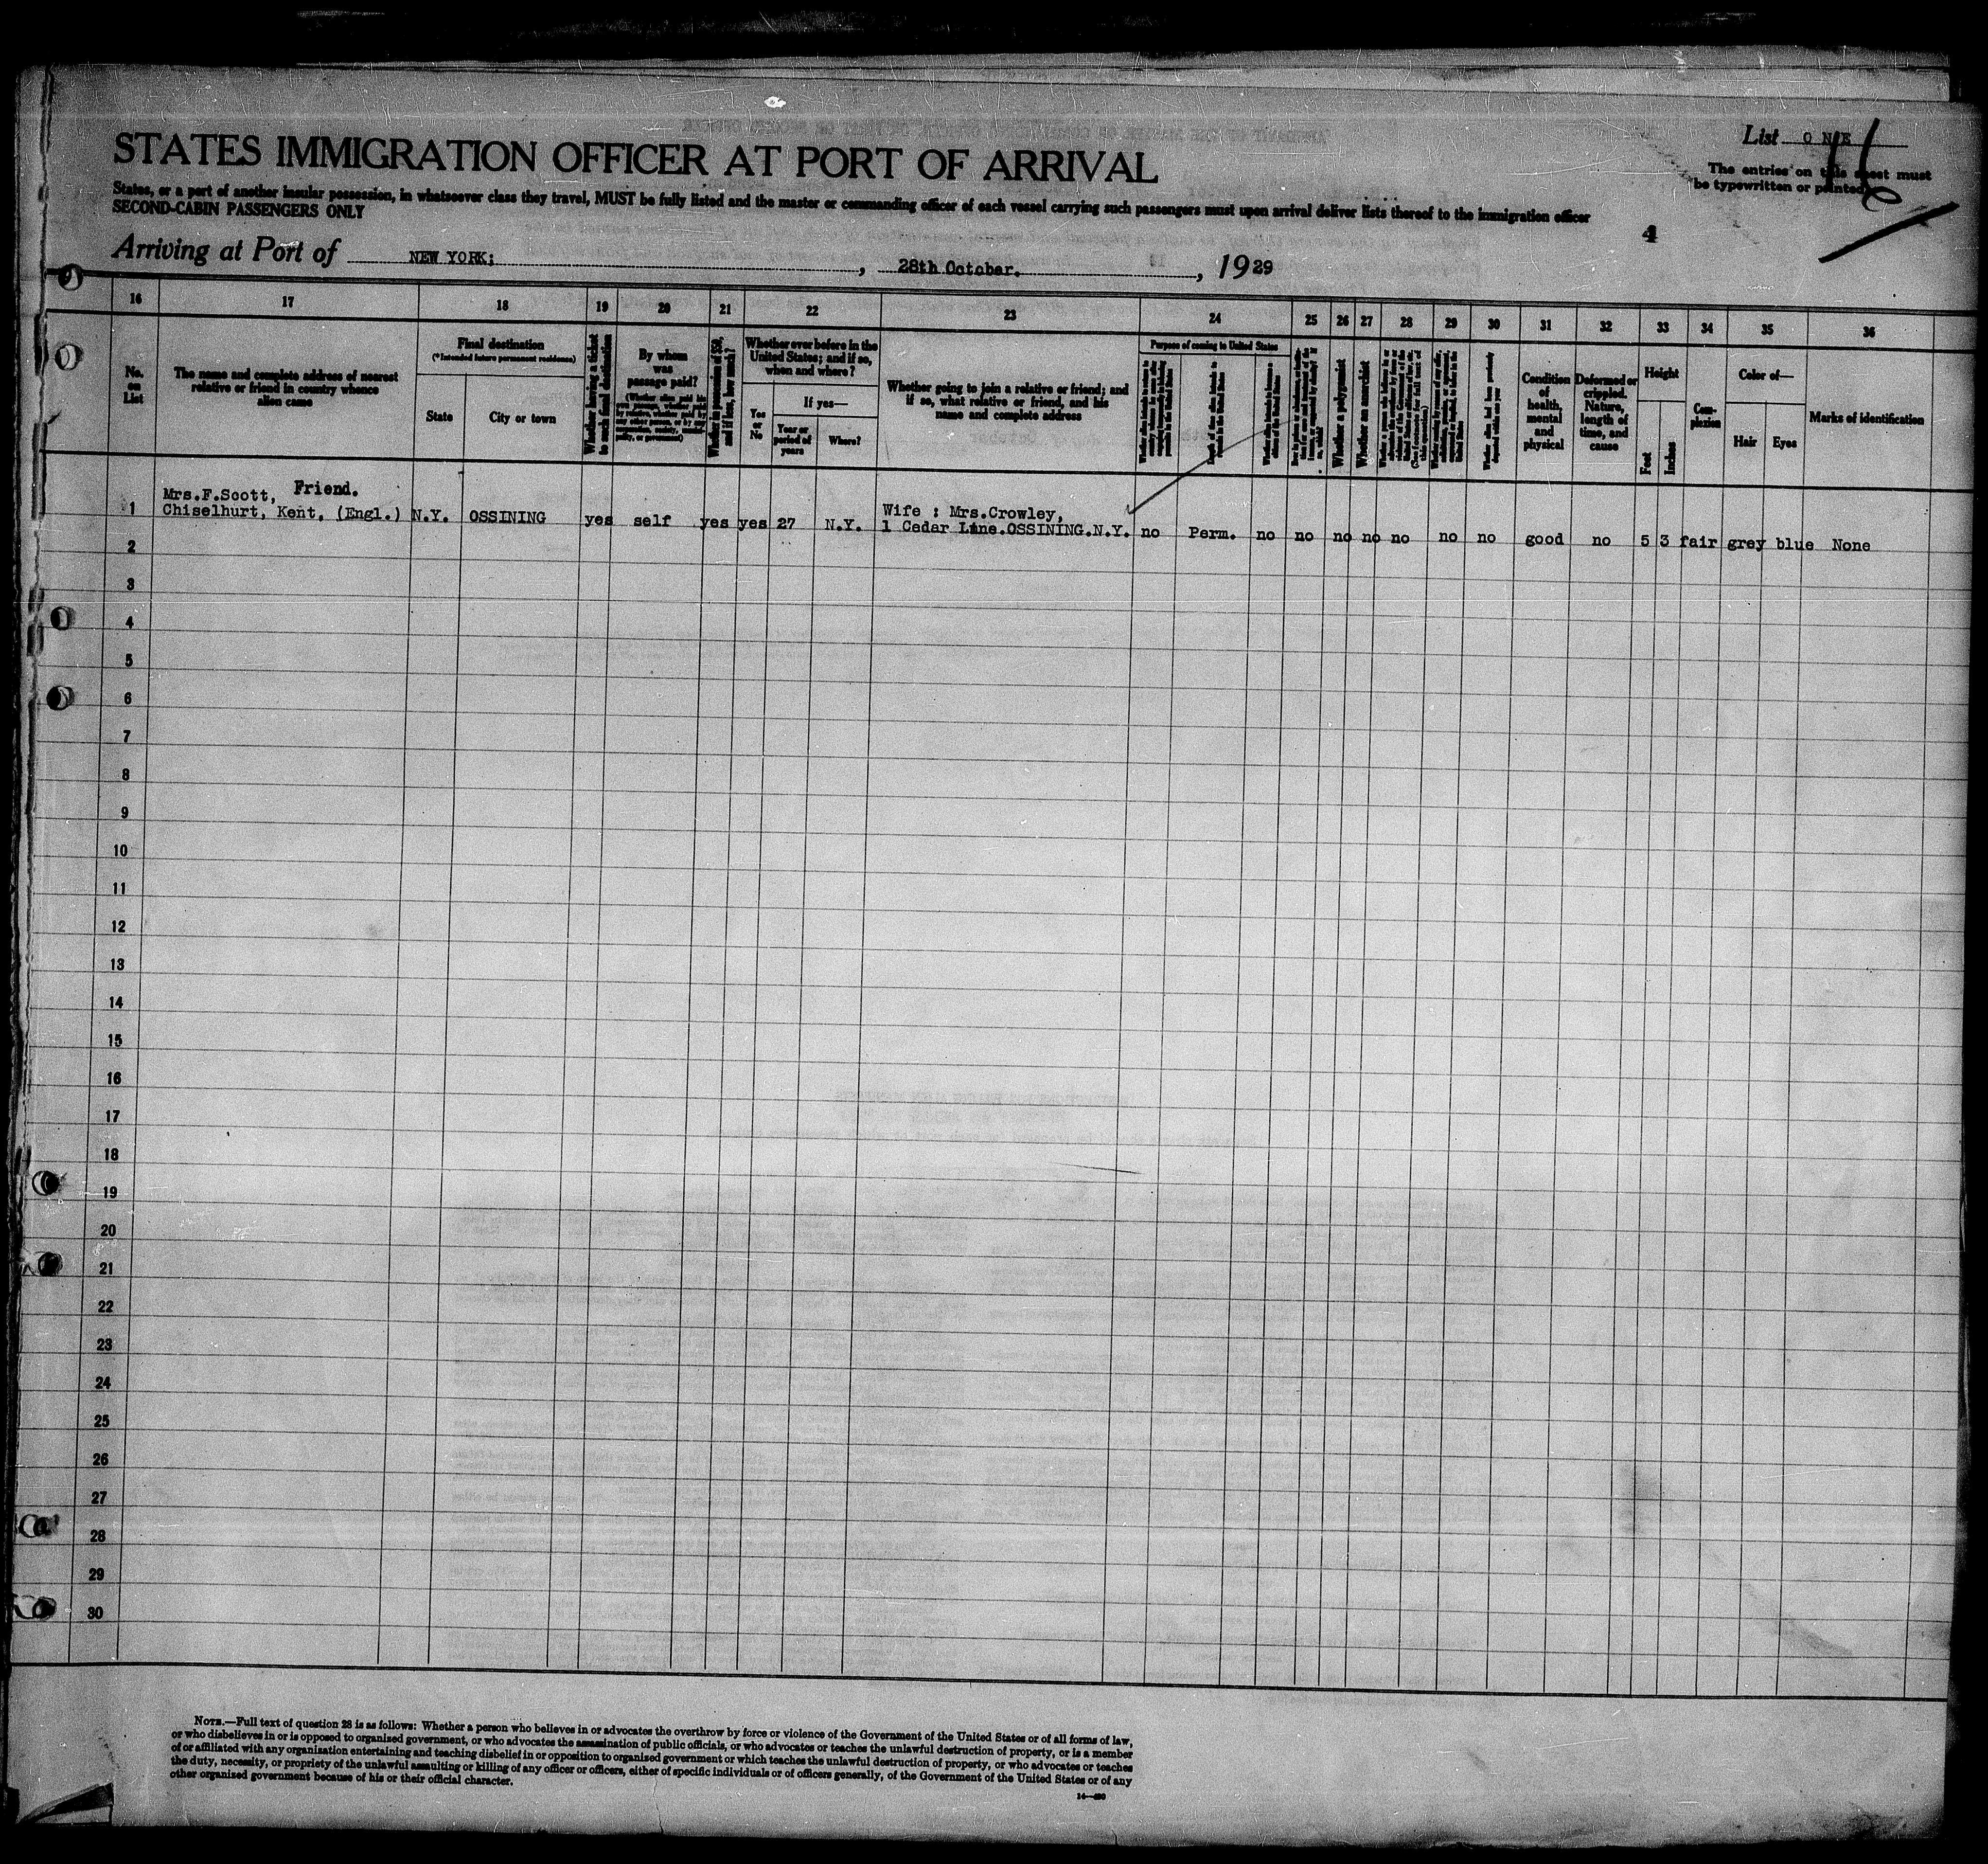 List ONE
The entries on this sheet must
be typewritten or printed
STATES IMMIGRATION OFFICER AT PORT OF ARRIVAL
States, or a port of another insular possession, in whatsoever class they travel, MUST be fully listed and the master or commanding officer of each vessel carrying such passengers must upon arrival deliver lists thereof to the immigration officer
SECOND-CABIN PASSENGERS ONLY
4
Arriving at Port of NEW YORK; , 28th October. , 1929
16 17 18 19 20 21 22 23 24 25 26 27 28 29 30 31 32 33 34 35 36
No.
on
List
The name and complete address of nearest
relative or friend in country whence
alien came
Final destination
(*Intended future permanent residence)
State
City or town
Whether having a ticket
to such final destination
By whom
was
passage paid?
Whether in possession of $50,
and if less, how much?
Whether ever before in the
United States; and if so,
when and where?
Yes
or
No
If yes—
Year or
period of
years
Where?
Whether going to join a relative or friend; and
if so, what relative or friend, and his
name and complete address
Purpose of coming to United States
Whether a polygamist
Whether an anarchist
Condition
of
health,
mental
and
physical
Deformed or
crippled.
Nature,
length of
time, and
cause
Height
Feet
Inches
Com-
plexion
Color of—
Hair
Eyes
Marks of identification
Mrs.F.Scott, Friend.
1 Chiselhurt, Kent, (Engl.) N.Y. OSSINING yes self yes yes 27 N.Y.
Wife : Mrs.Crowley,
1 Cedar Lane.OSSINING.N.Y. no Perm. no no no no no no no good no 5 3 fair grey blue None
2
3
4
5
6
7
8
9
10
11
12
13
14
15
16
17
18
19
20
21
22
23
24
25
26
27
28
29
30
NOTE.—Full text of question 28 is as follows: Whether a person who believes in or advocates the overthrow by force or violence of the Government of the United States or of all forms of law,
or who disbelieves in or is opposed to organized government, or who advocates the assassination of public officials, or who advocates or teaches the unlawful destruction of property, or is a member
of or affiliated with any organization entertaining and teaching disbelief in or opposition to organized government or which teaches the unlawful destruction of property, or who advocates or teaches
the duty, necessity, or propriety of the unlawful assaulting or killing of any officer or officers, either of specific individuals or of officers generally, of the Government of the United States or of any
other organized government because of his or their official character.